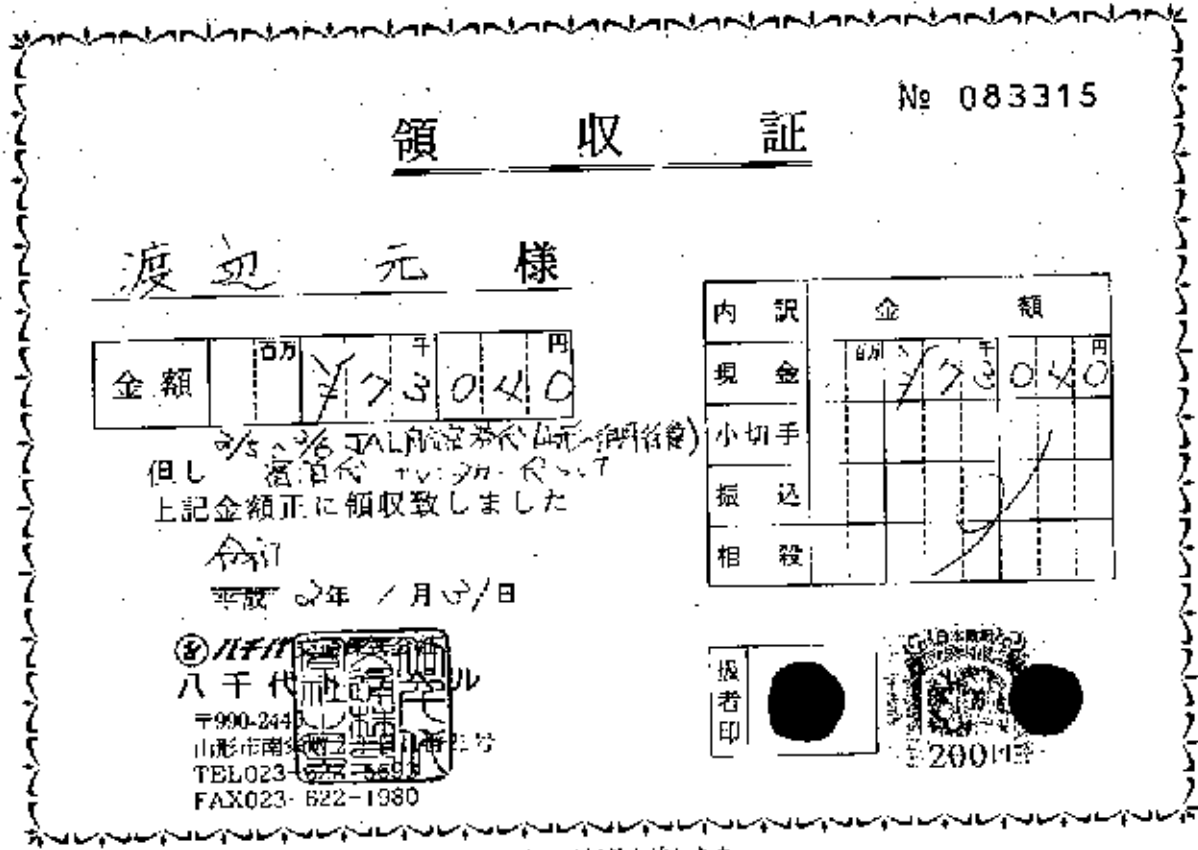 № 083315
領 収 証
渡辺 元 様
金額 百万 千 円 ¥73040
2/5~2/6 JAL航空券代
但し 宿泊代
上記金額正に領収致しました
令和
平成 2年 1月31日
八千代
〒990-244
山形市南
TEL023-
FAX023-622-1980
内訳 金額
現金 百万 千 円 ¥73040
小切手
振込
相殺
扱者印
200円